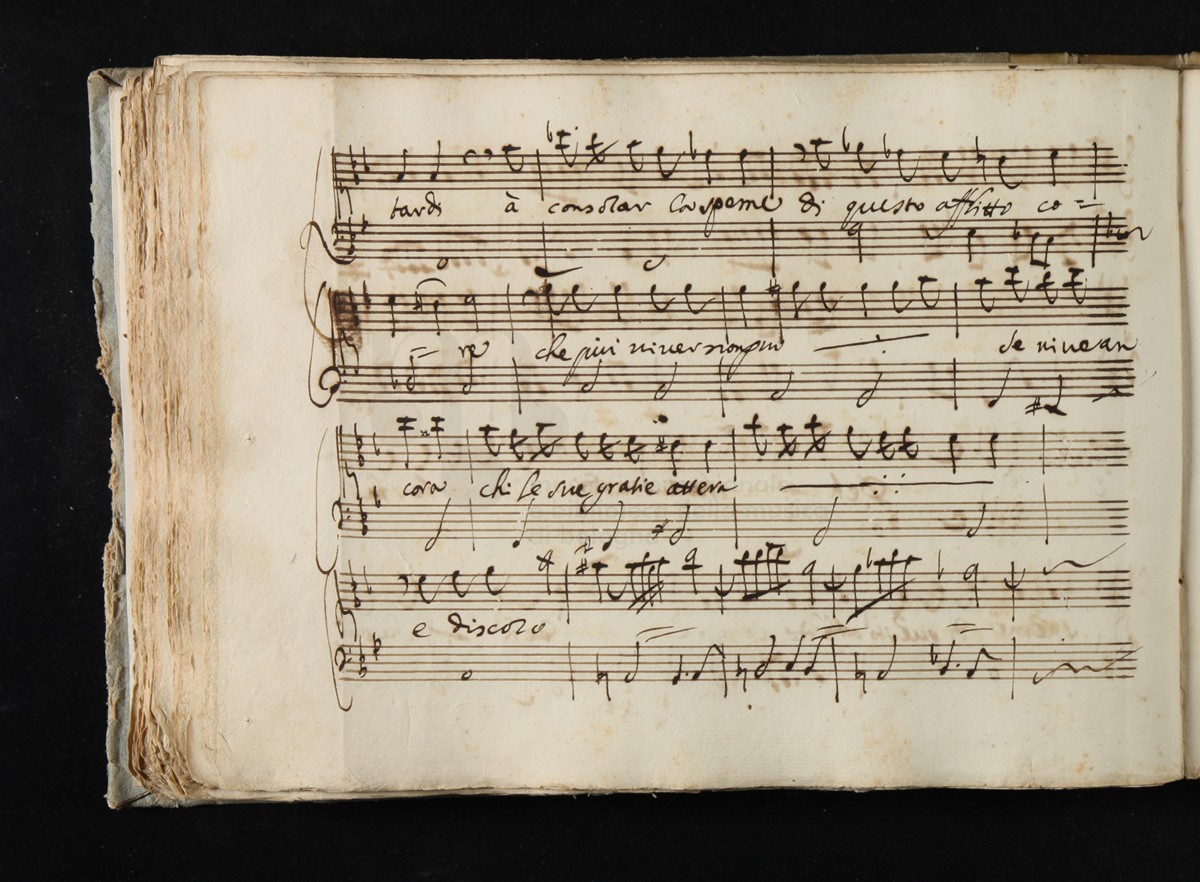 tardi à consolar la speme di questo afflitto co=
=re che piu viver non puo
se vive an
cora chi le sue gratie attera
e discolo